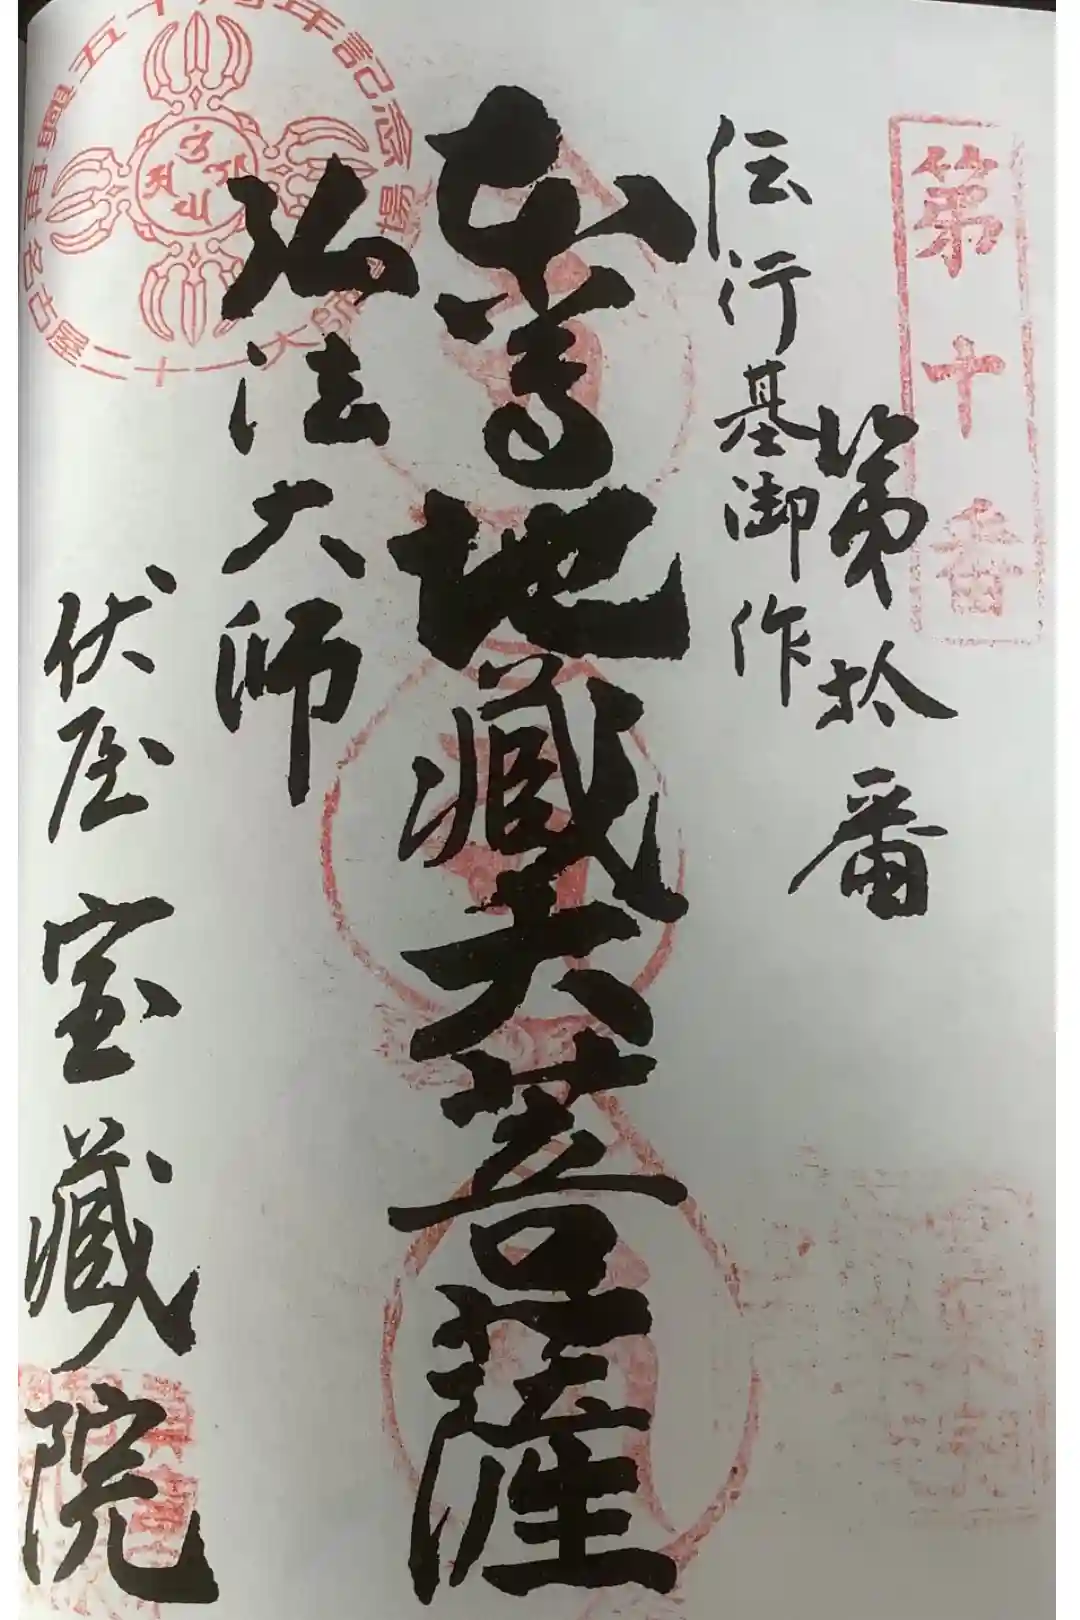 第十番
第拾番
伝行基御作
本尊地蔵大菩薩
弘法大師
伏屋 宝蔵院
開創五十周年記念
名古屋二十一大師